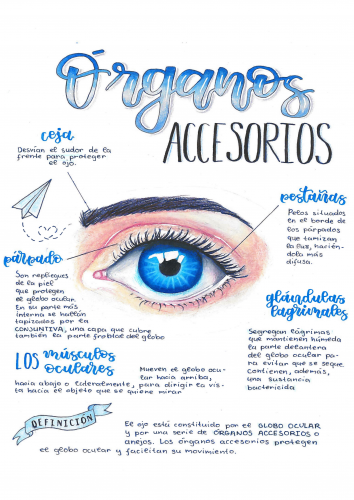 Órganos
ACCESORIOS
ceja
Desvían el sudor de la
frente para proteger
el ojo.
pestañas
Pelos situados
en el borde de
los párpados
que tamizan
la luz, hacién-
dola más
difusa.
párpado
Son repliegues
de la piel
que protegen
el globo ocular.
En su parte más
interna se hallan
tapizados por la
CONJUNTIVA, una capa que cubre
también la parte frontal del globo
glándulas
lagrimales
Segregan lágrimas
que mantienen húmeda
la parte delantera
del globo ocular pa-
ra evitar que se seque.
Contienen, además,
una sustancia
bactericida
LOS músculos
oculares
Mueven el globo ocu-
lar hacia arriba,
hacia abajo o lateralmente, para dirigir la vis-
ta hacia el objeto que se quiere mirar
DEFINICIÓN
El ojo está constituido por el GLOBO OCULAR
y por una serie de ÓRGANOS ACCESORIOS o
anejos. Los órganos accesorios protegen
el globo ocular y facilitan su movimiento.